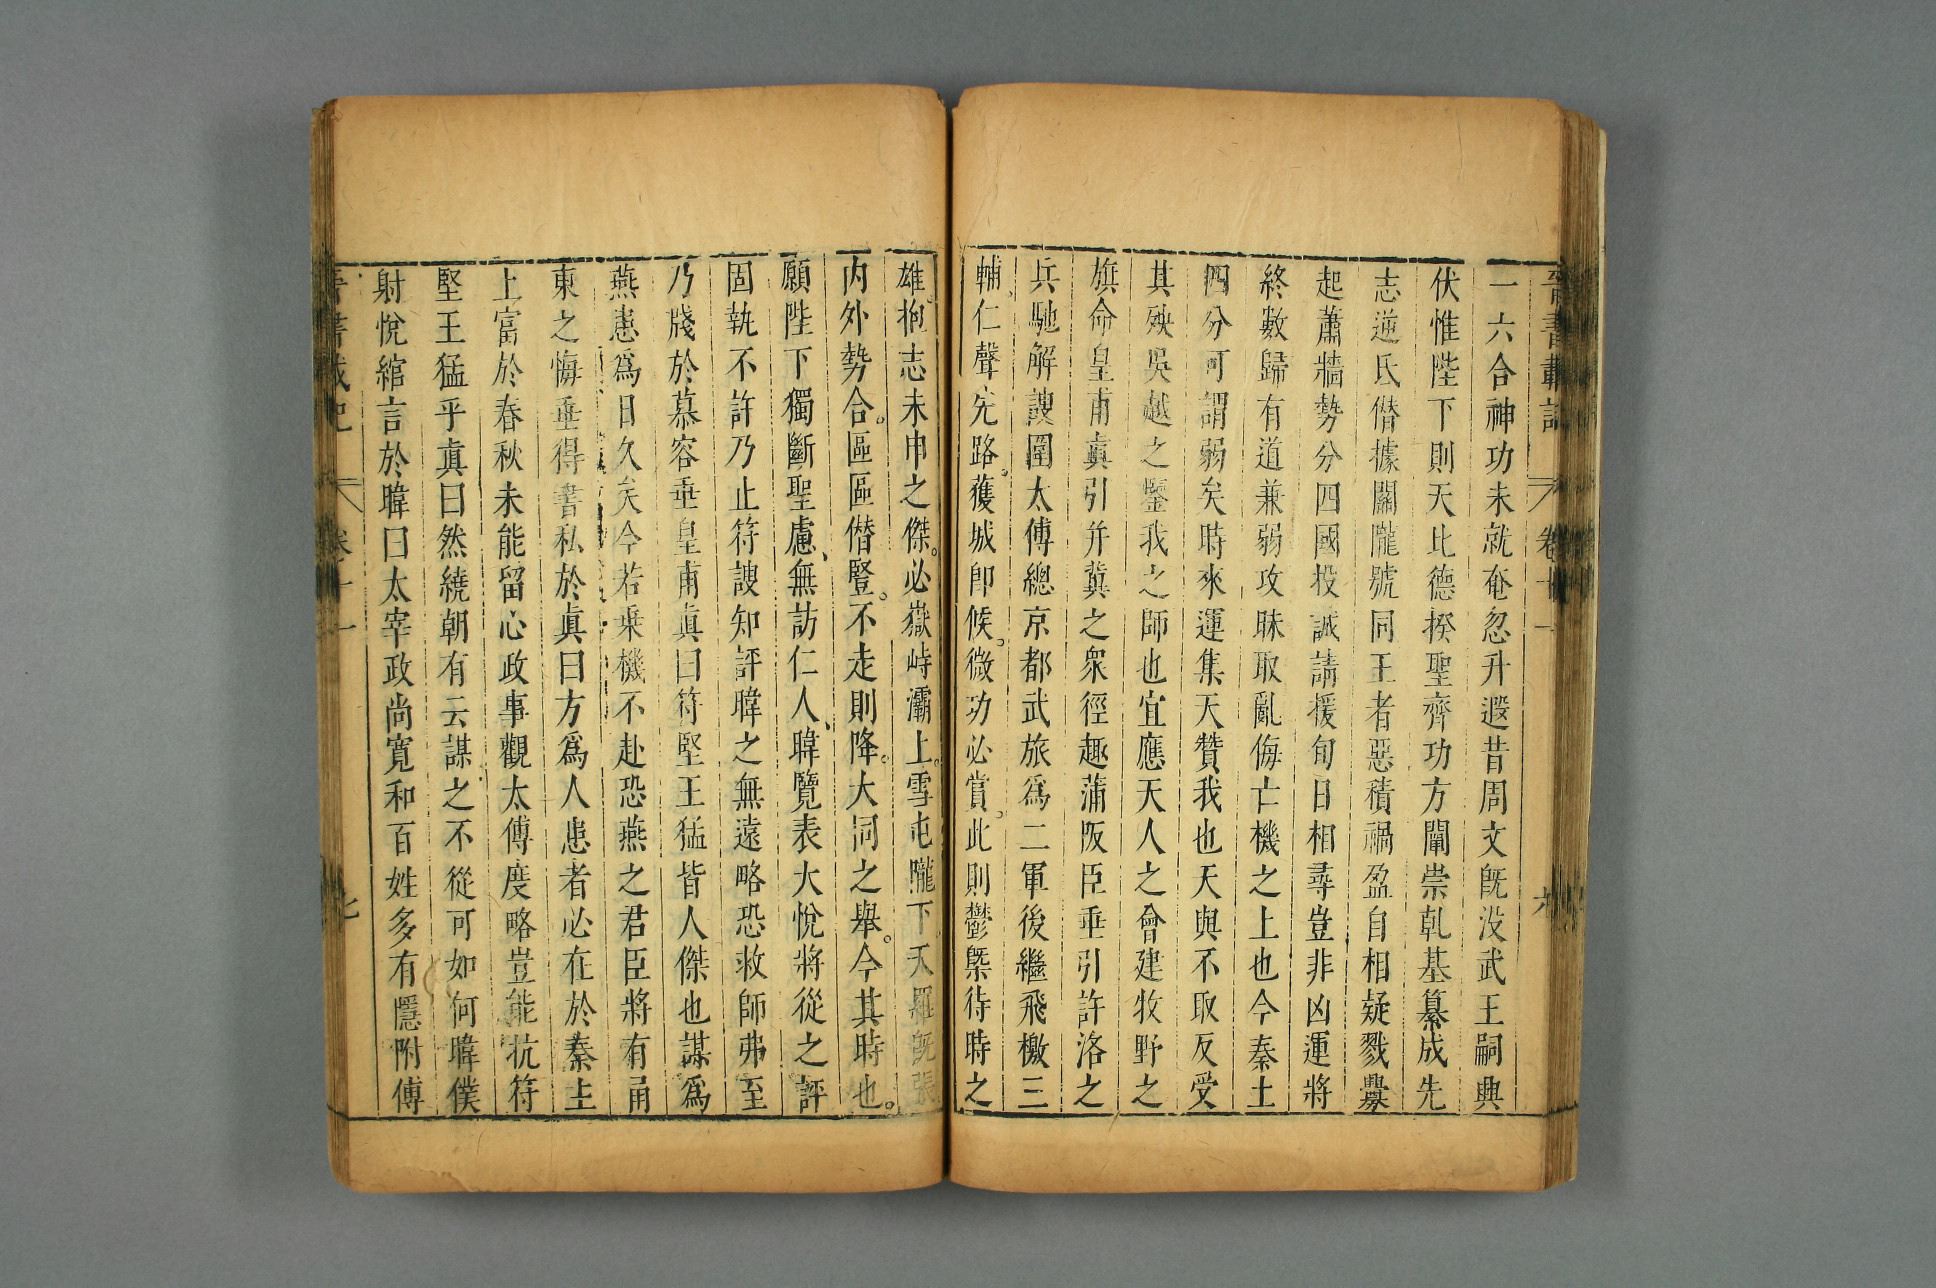 晋書載記 卷十一 六
一六合神功未就奄忽升遐昔周文旣没武王嗣興
伏惟陛下則天比德揆聖齊功方闡崇乹基纂成先
志逆氐僭據關隴號同王者惡積禍盈自相疑戮釁
起蕭牆勢分四國投誠請援旬日相尋豈非凶運將
終數歸有道兼弱攻昧取亂侮亡機之上也今秦土
四分可謂弱矣時來運集天贊我也天與不取反受
其殃吳越之鑒我之師也宜應天人之會建牧野之
旗命皇甫眞引并冀之衆徑趣蒲阪臣垂引許洛之
兵馳解謏圍太傅總京都武旅爲二軍後繼飛檄三
輔。仁聲先路。獲城卽候。微功必賞。此則鬱槩待時之
雄。抱志未申之傑。必嶽峙灞上。雪屯隴下。天羅旣張
内外勢合。區區僭豎。不走則降。大同之舉。今其時也。
願陛下獨斷聖慮、無訪仁人、暐覽表大悅將從之評
固執不許乃止符謏知評暐之無遠略恐救師弗至
乃牋於慕容垂皇甫眞曰符堅王猛皆人傑也謀爲
燕患爲日久矣今若乗機不赴恐燕之君臣將有甬
東之悔垂得書私於眞曰方爲人患者必在於秦主
上富於春秋未能留心政事觀太傅度略豈能抗符
堅王猛乎眞曰然繞朝有云謀之不從可如何暐僕
射悅綰言於暐曰太宰政尚寬和百姓多有隱附傅
晋書載記 卷十一 七